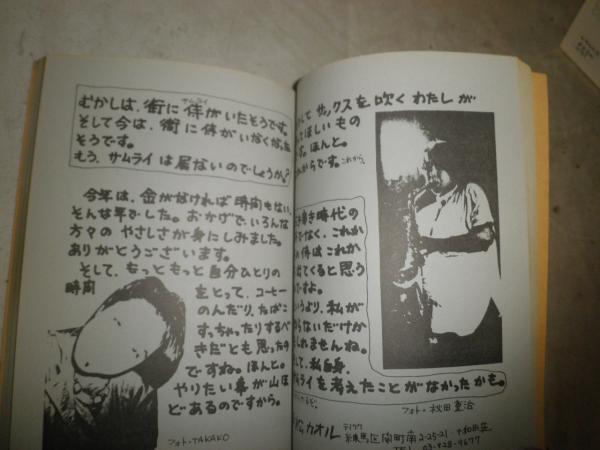 むかしは、街に侍がいたそうです。
サムライ
そして今は、街に侍がいなくな
そうです。
もう、サムライは居ないのでしょうか?
今年は、金がなければ時間もない、
そんな年でした。おかげで、いろんな
方々のやさしさが身にしみました。
ありがとうございます。
そして、もっともっと自分ひとりの
時間をとって、コーヒー
のんだり、たばこ
すっちゃったりするべ
きだとも思った
ですね。ほんと。
やりたい事が山ほ
どあるのですから。
フォト・TAKAKO
して サックスを吹く わたし が
てほしい もの
す。ほんと。
からです。これから。
き時代の
でなく、これか
の侍はこれか
てくると思う
ですよ。
いうより、私が
らないだけか
しれませんね。
て、私自身、
ムライを考えたことがなかったかも。
フォト・秋田
カオル
練馬区関町南2-25-21
TEL 03-928-9677